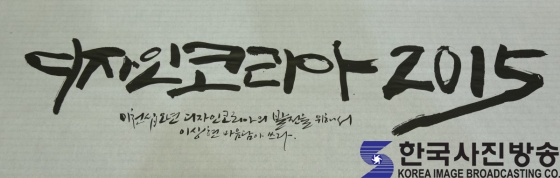 디자인코리아 2015
이천십오년 디자인코리아의 발전을 위해서
이상현 마음담아 쓰다.
한국사진방송
KOREA IMAGE BROADCASTING CO